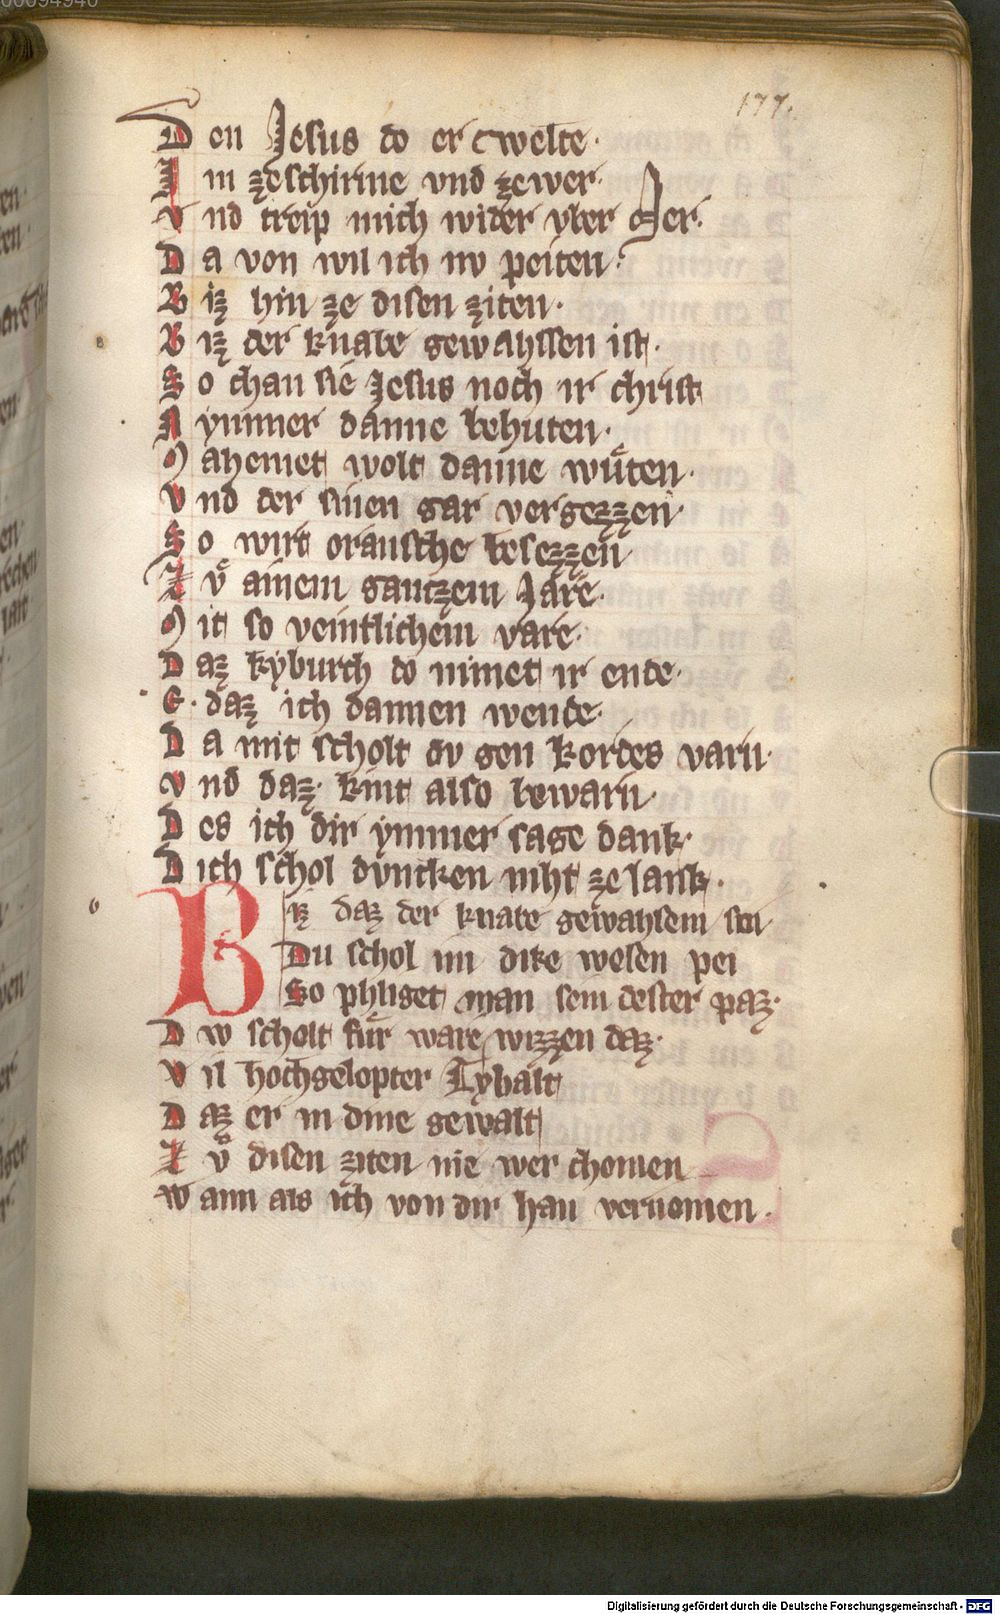 00094940
177.
Den Jesus do er erwelte·
Im zeschirme vnd zewer·
vnd treip mich wider vber Mer·
Da von wil ich nv peiten·
Biz hin ze disen ziten·
Biz der knabe gewahssen ist·
So chan sie Jesus noch ir christ
Nymmer danne behuten·
Mahemet wolt danne wuͤten·
Vnd der sinen gar vergezzen·
So wirt oransche besezzen
Zuͦ ainem gantzem Jare·
Mit so veintlichem vare·
Daz kyburch do nimet ir ende·
E· daz ich dannen wende·
Da mit scholt dv gen kordes varn·
vnd daz kint also bewarn·
Des ich dir ymmer sage dank·
Dich schol dvncken niht ze lank·
Biz daz der knabe gewahsem sei
Du schol im dike wesen pei
So phliget man sein dester paz·
Dw scholt fuͤr ware wizzen daz·
Vil hochgelopter Tybalt
Daz er in dine gewalt
Zuͦ disen ziten nie wer chomen
wann als ich von dir han vernomen·
Digitalisierung gefördert durch die Deutsche Forschungsgemeinschaft - DFG